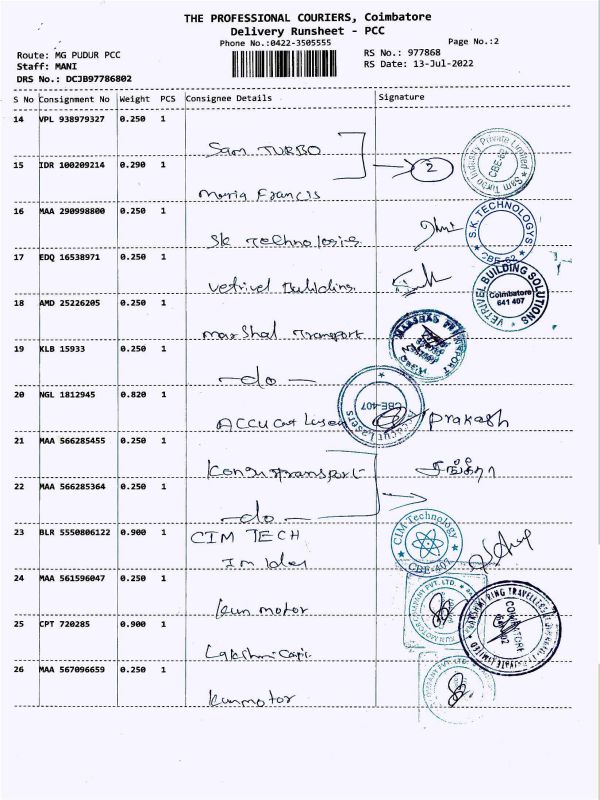 THE PROFESSIONAL COURIERS, Coimbatore
Delivery Runsheet - PCC
Phone No.:0422-3505555
Page No.:2
Route: MG PUDUR PCC
RS No.: 977868
Staff: MANI
RS Date: 13-Jul-2022
DRS No.: DCJB97786802
S No Consignment No Weight PCS Consignee Details Signature
14 VPL 938979327 0.250 1
Sam TURBO
15 IDR 100209214 0.290 1
2
Sam Turbo Industry Private Limited
CBE-62
Maria Francis
16 MAA 290998800 0.250 1
S.K. TECHNOLOGYS
CBE-62
SK Technologies
17 EDQ 16538971 0.250 1
Vetrivel Building
VETRIVEL BUILDING SOLUTIONS
Coimbatore
641 407
18 AMD 25226205 0.250 1
Marshal Transport
19 KLB 15933 0.250 1
-do-
20 NGL 1812945 0.820 1
CBE-407
Accucut Lasers
ACCU Cut Laser
Prakash
21 MAA 566285455 0.250 1
22 MAA 566285364 0.250 1
-do-
23 BLR 5550806122 0.900 1
CIM TECH
CIM Technology
CBE-407
24 MAA 561596047 0.250 1
Kun motor
KUN MOTOR COMPANY PVT. LTD.
25 CPT 720285 0.900 1
COIMBATORE
26 MAA 567096659 0.250 1
Kun motor
COMPANY PVT. LTD.